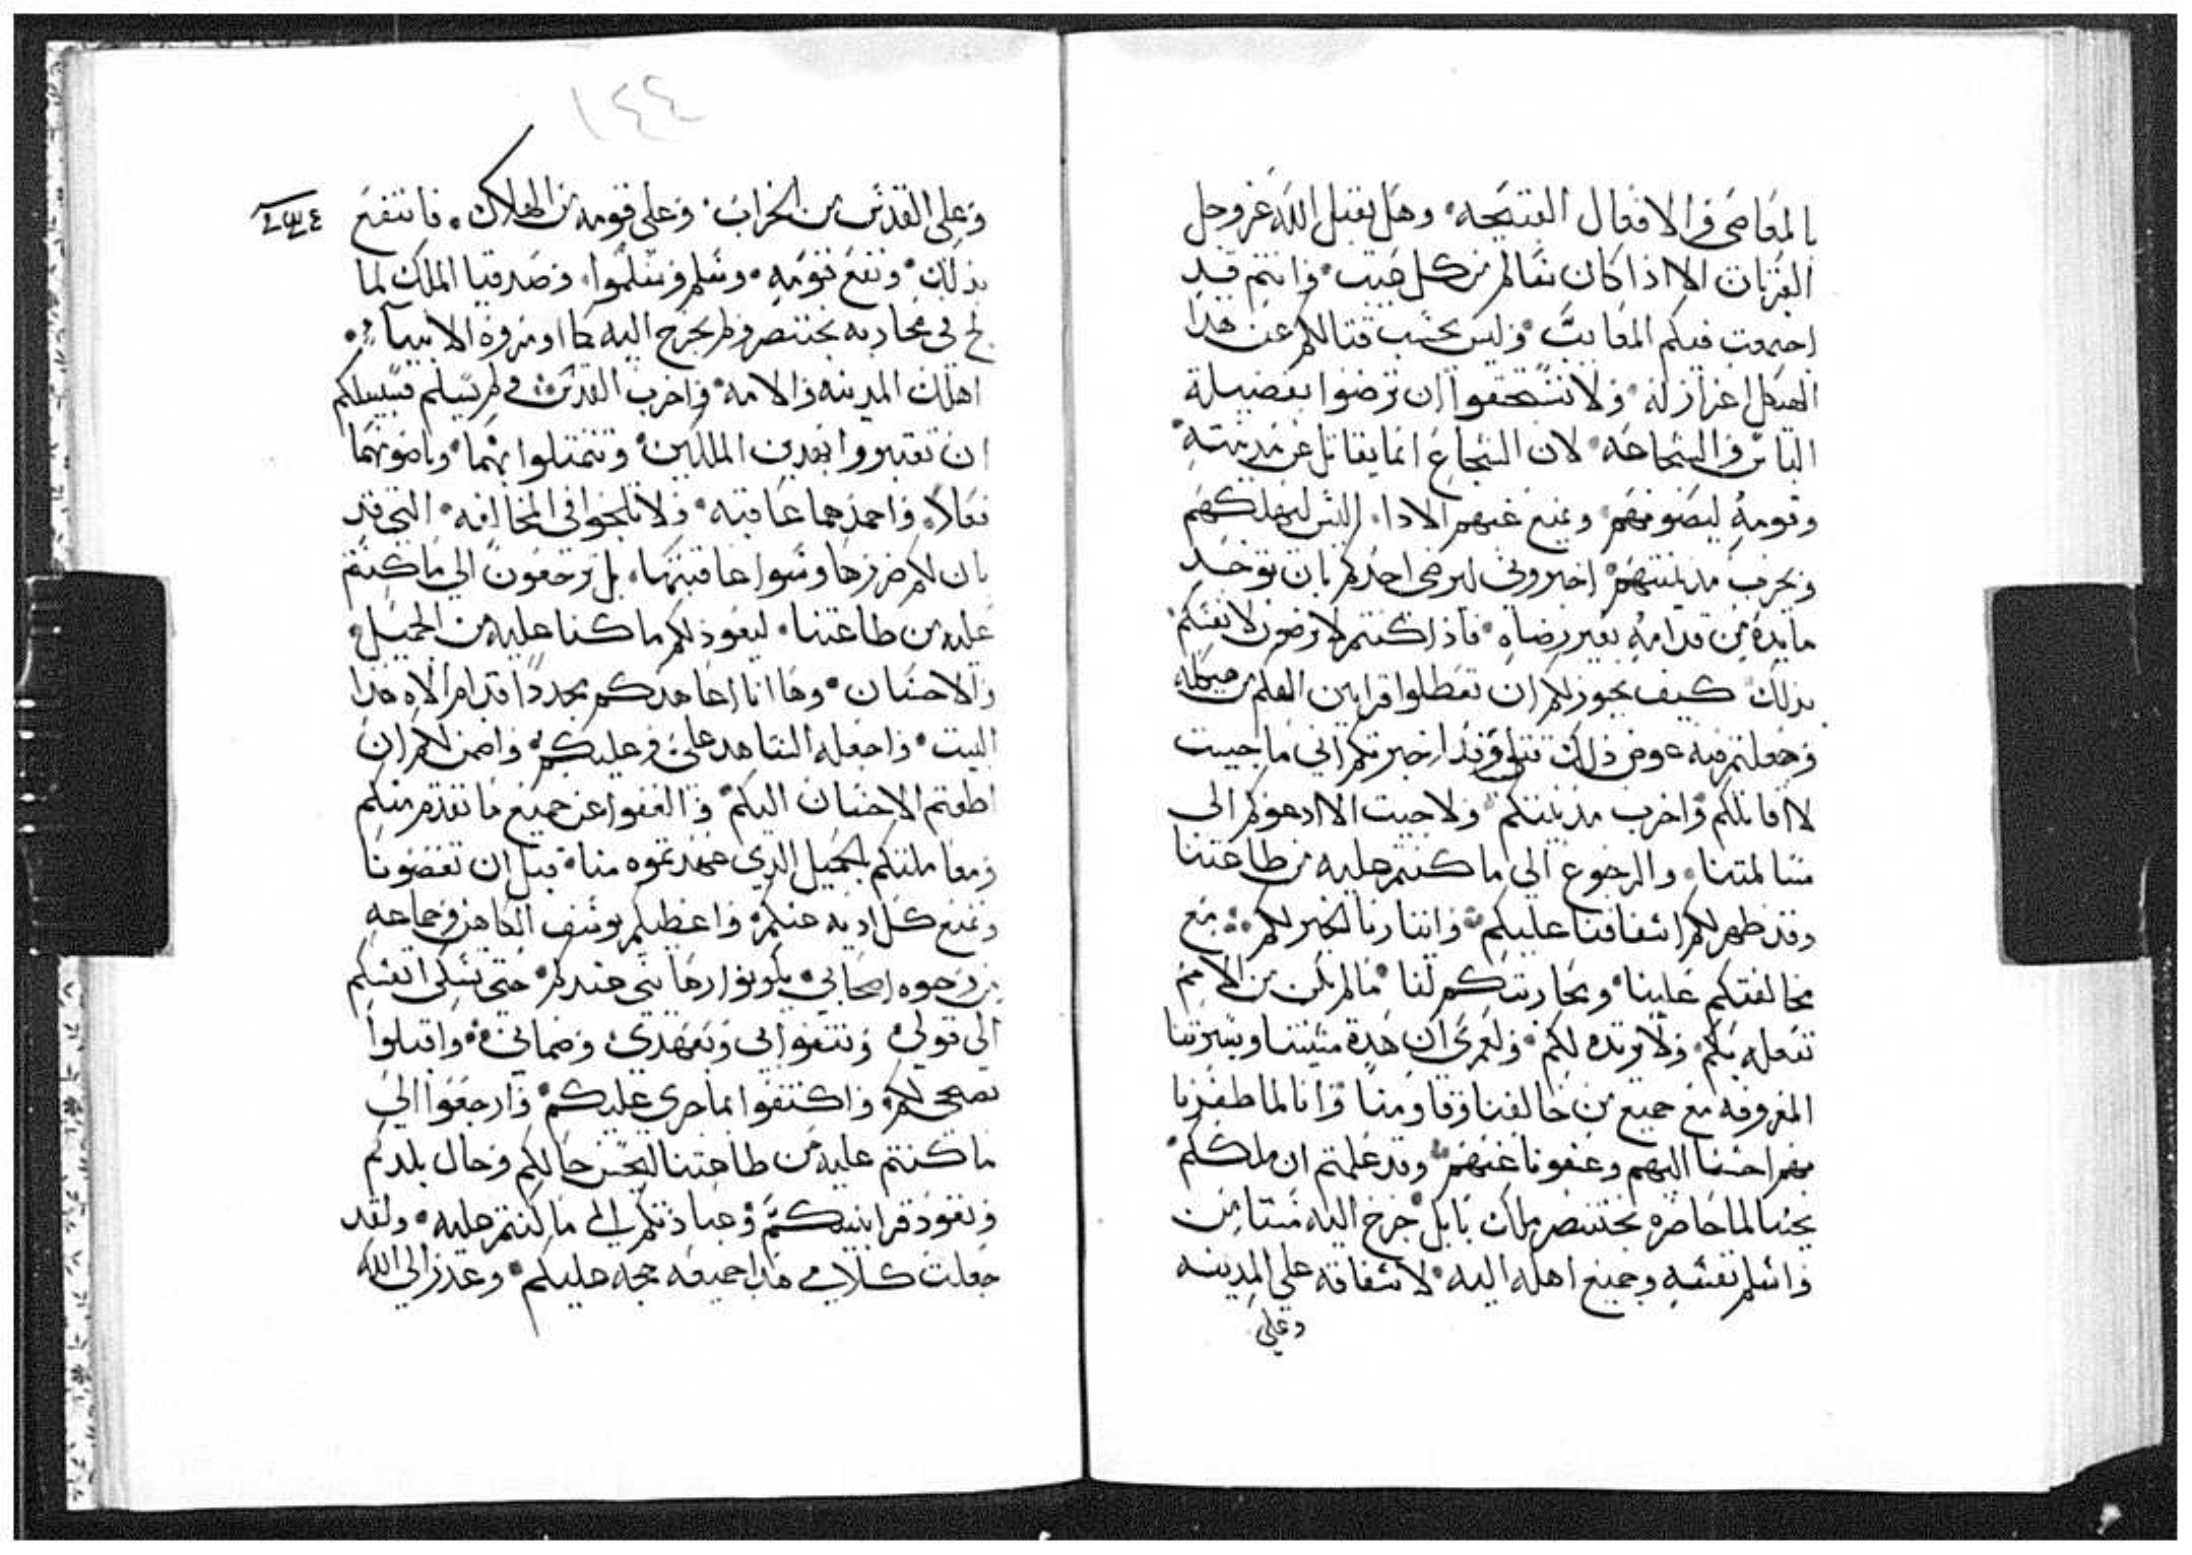 بالمعاصي والافعال القبيحه وهل يقبل الله عز وجل
القربان الا اذا كان سالم من كل عيب وانتم قد
اجتمعت فيكم المعايب وليس بحسب قتالكم عن هذا
الهيكل اعزاز له ولا تستحقوا ان ترضوا بفضيلة
الباس والشجاعه لان الشجاع انما يقاتل عن مدينته
وقومه ليصونهم ويمنع عنهم الاذا ليس ليهلكهم
ويخرب مدينتهم اخبروني ايرضى احدكم بان توخد
مايدة من قدامه بغير رضاه فاذا كنتم لا ترضون لانفسكم
بذلك كيف يجوز لكم ان تعطلوا قرابين الله من هيكله
وجعلتم فيه عوض ذلك قتلى وقد اخبرتكم اني ما جيت
لا اقاتلكم واخرب مدينتكم ولا جيت الا ادعوكم الى
مسالمتنا والرجوع الى ما كنتم عليه من طاعتنا
وقد ظهر لكم اشفاقنا عليكم وايثارنا الخير لكم مع
مخالفتكم علينا ومحاربتكم لنا ما لم يكن من الامم
نفعله بكم ولا نرده لكم ولعمري ان هذه مشيتنا وسيرتنا
المعروفه مع جميع من خالفنا وقاومنا وانا لما ظفرنا
بهم احسنا اليهم وعفونا عنهم وقد علمتم ان ملككم
يخنيا لما حاصره بختنصر ملك بابل خرج اليه مستامن
واسلم نفسه وجميع اهله اليه لاشفاقه على المدينه
وعلى
١٤٤
وعلى القدس من الخراب وعلى قومه من الهلاك فانتفع
بذلك ونفع قومه وسلم وسلموا وصدقيا الملك لما
لج في محاربه بختنصر ولم يخرج اليه كما اومروه الانبيا
اهلك المدينه والامه واخرب القدس ولم يسلم فسبيلكم
ان تعتبروا بهدين الملكين وتتمثلوا بهما وباصوبهما
فعالا واحمدهما عاقبه ولا تلجوا في المخالفه التي قد
بان لكم ضررها وسوا عاقبتها بل ترجعون الي ما كنتم
عليه من طاعتنا ليعود لكم ما كنا عليه من الجميل
والاحسان وها انا اعاهدكم مجددا قدام الاه هذا
البيت واجعله الشاهد علي وعليكم واضمن لكم ان
اطعتم الاحسان اليكم والعفوا عن جميع ما تقدم منكم
ومعاملتكم بالجميل الدي عهدتموه منا قبل ان تعصونا
ونمنع كل اديه عنكم واعطيكم يوسف الكاهن وجماعه
من وجوه اصحابي يكونوا رهاين عندكم حتى تسكن انفسكم
الي قولي وتتقوا بي وبعهدي وضماني واقبلوا
نصحي لكم واكتفوا بما جرى عليكم وارجعوا الي
ما كنتم عليه من طاعتنا ليحسن حالكم وحال بلدكم
وتعود قرابينكم وعبادتكم الى ما كنتم عليه ولقد
جعلت كلامي هذا جميعه حجه عليكم وعدر الي الله